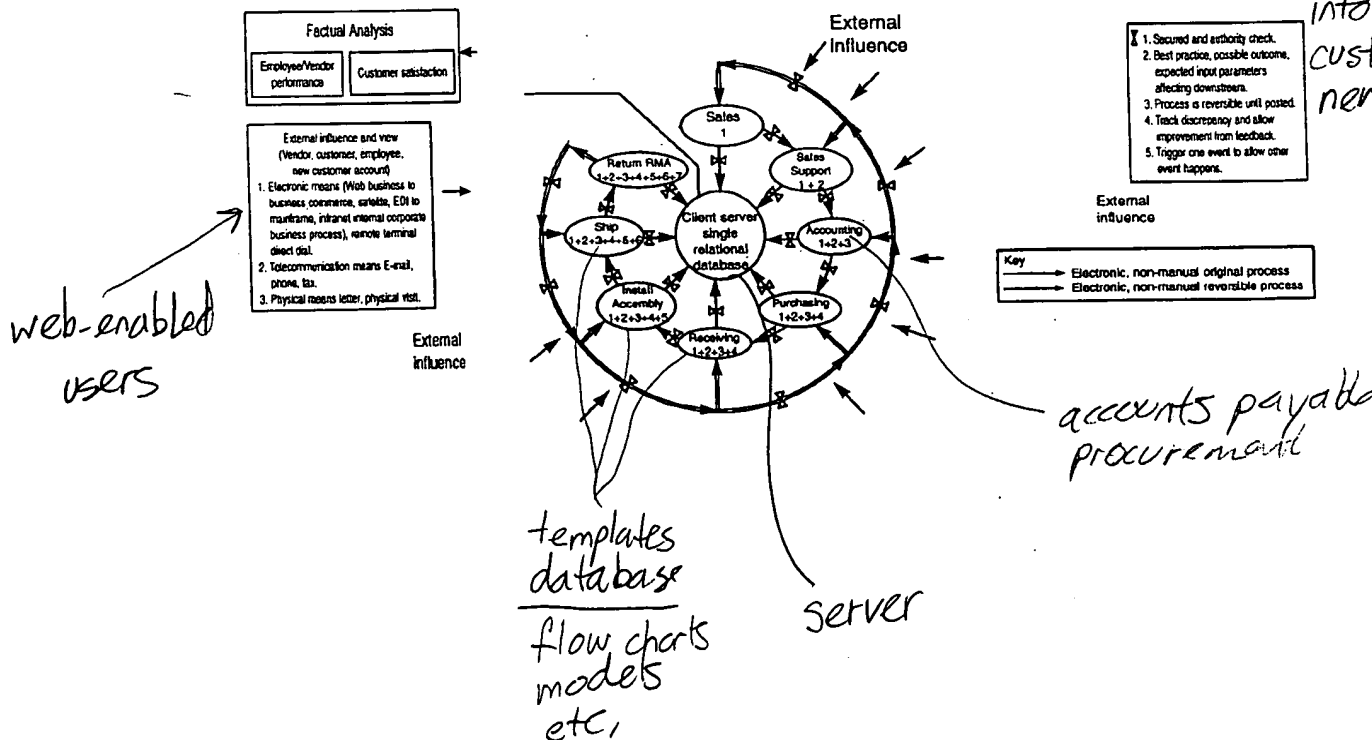 Factual Analysis
Employee/Vendor
performance
Customer satisfaction
External influence and view
(Vendor, customer, employee,
new customer account)
1. Electronic means (Web business to
business commerce, satelite, EDI to
mainframe, intranet internal corporate
business process), remote terminal
direct dial.
2. Telecommunication means E-mail,
phone, fax.
3. Physical means letter, physical visit.
web-enabled
users
External
influence
External
Influence
Sales
1
Sales
Support
1+2
Accounting
1+2+3
Purchasing
1+2+3+4
Receiving
1+2+3+4
Install
Accembly
1+2+3+4+5
Ship
1+2+3+4+5+6
Return RMA
1+2+3+4+5+6+7
Client server
single
relational
database
into
1. Secured and authority check.
2. Best practice, possible outcome,
expected input parameters
affecting downstream.
3. Process is reversible until posted.
4. Track discrepancy and allow
improvement from feedback.
5. Trigger one event to allow other
event happens.
External
influence
Key
Electronic, non-manual original process
Electronic, non-manual reversible process
accounts payable
procurement
templates
database
flow charts
models
etc,
server